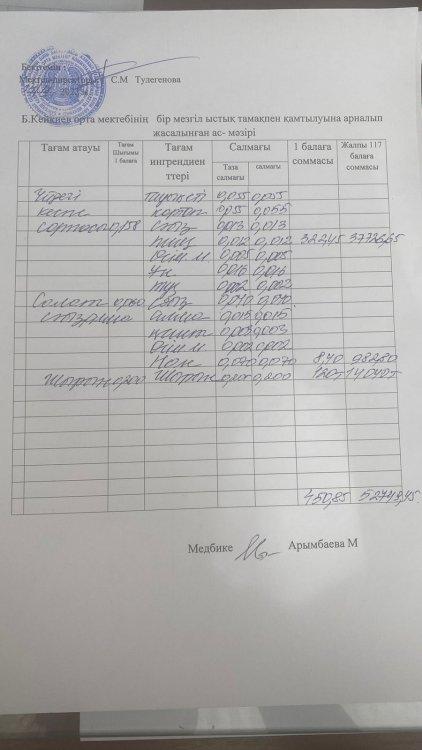 Бекітемін:
Мектеп директоры С.М Тулегенова
Б.Кейкиев орта мектебінің бір мезгіл ыстық тамақпен қамтылуына арналып
жасалынған ас- мәзірі
Тағам атауы Тағам Шығымы 1 балаға Тағам ингрендиенттері Салмағы 1 балаға соммасы Жалпы 117 балаға соммасы
Таза салмағы салмағы
0,055 0,055
картоп 0,055 0,055
0,158 сәбіз 0,013 0,013
пияз 0,012 0,012 322,45 37726,65
өсім.м 0,005 0,005
ұн 0,016 0,016
тұз 0,002 0,002
Салат 0,060 сәбіз 0,040 0,040
алма 0,015 0,015
қант 0,003 0,003
өсім.м 0,002 0,002
Нан 0,070 0,070 8,40 982,80
0,200 0,200 0,200 120т 14040т
450,85 52749,45
Медбике Арымбаева М